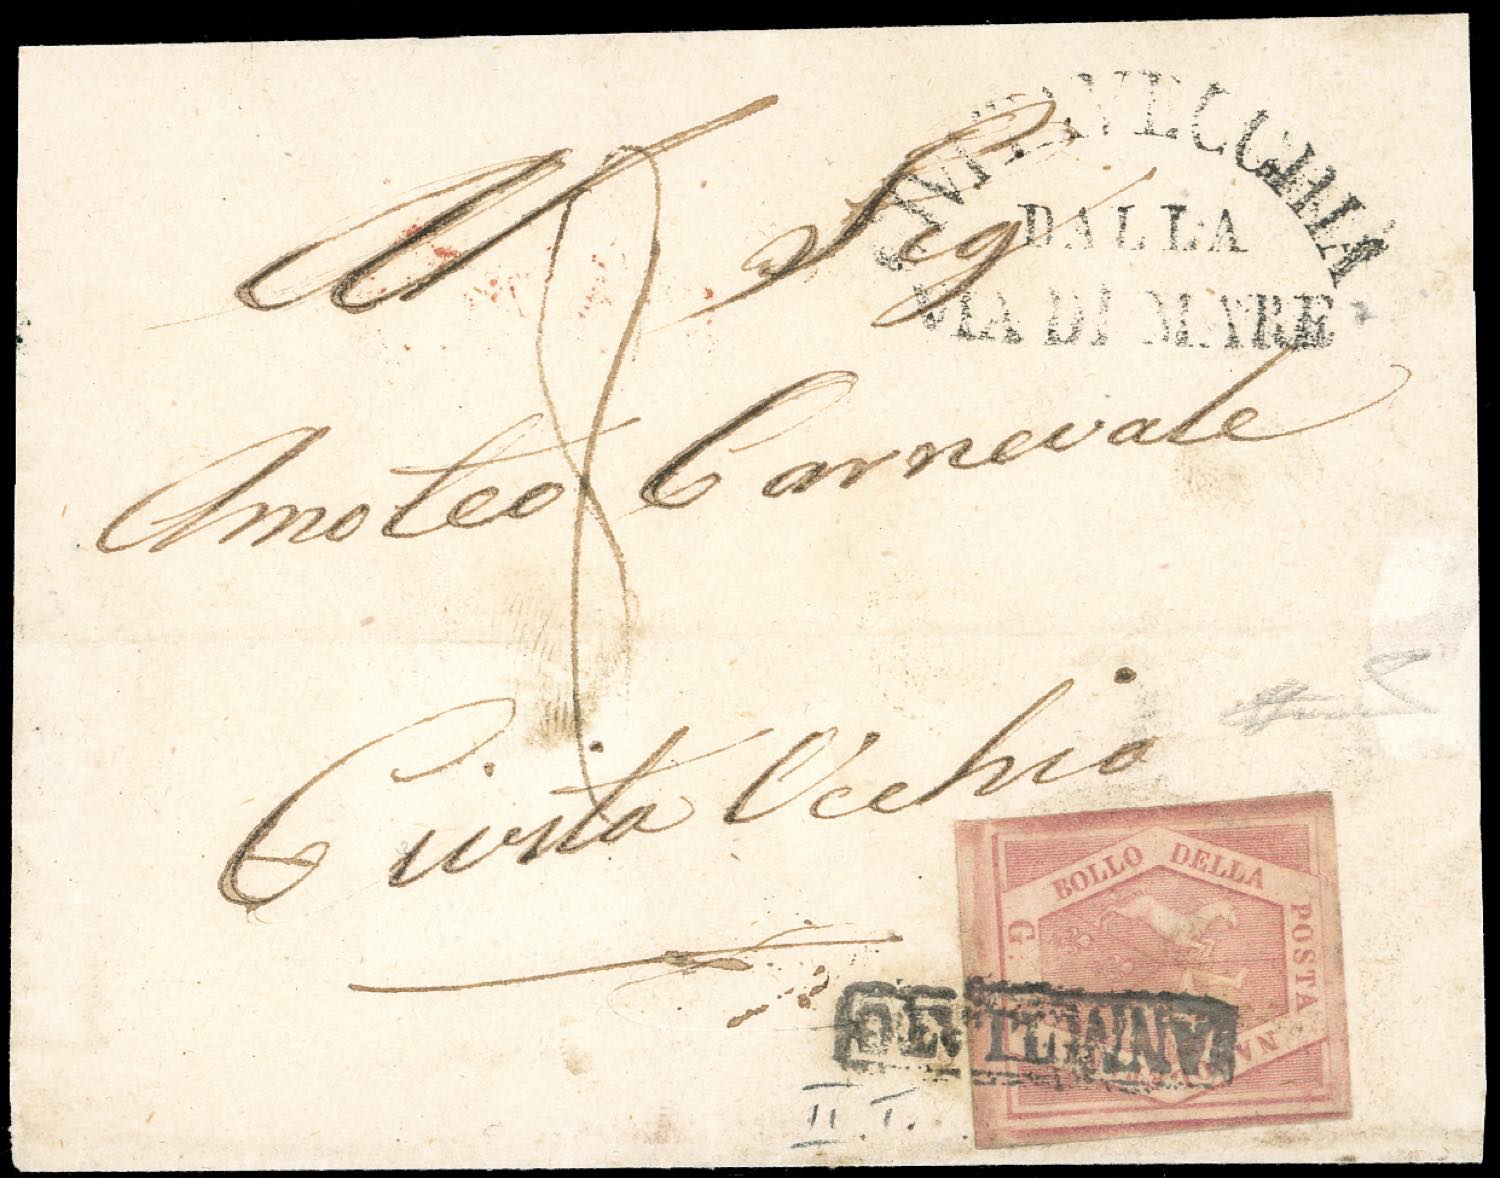 CIVITAVECCHIA
DALLA
VIA DI MARE
Al Sig
8
Amoteo Carnevale
Civita Vecchia
BOLLO DELLA POSTA NA
G
ANNULLATO
II T.